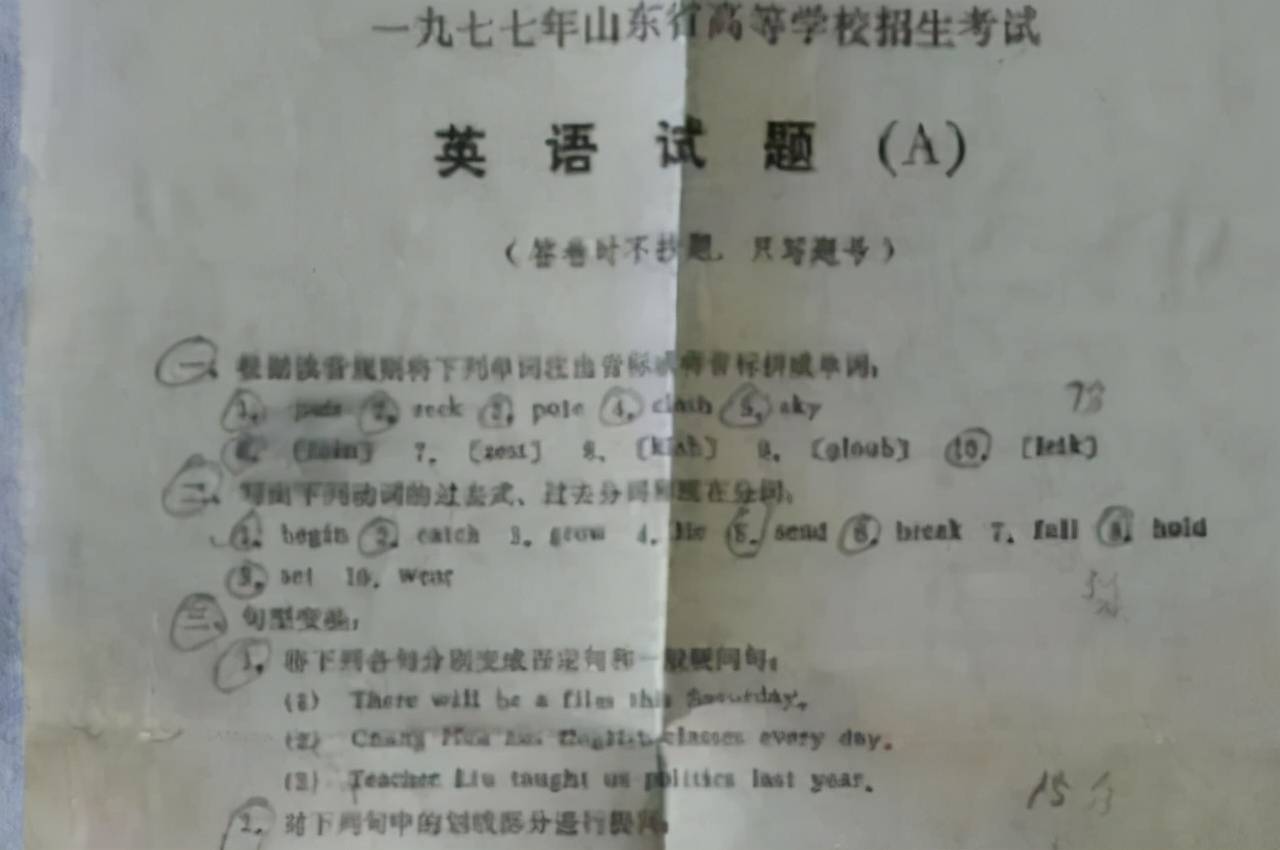 一九七七年山东省高等学校招生考试
英语试题 (A)
(答卷时不抄题, 只写题号)
一、根据读音规则将下列单词注出音标或将音标拼成单词:
1. 2. seek 3. pole 4. cloth 5. sky
6. 7. 8. 9. 10.
二、写出下列动词的过去式、过去分词和现在分词。
1. begin 2. catch 3. grow 4. lie 5. send 6. break 7. fall 8. hold
9. set 10. wear
三、句型变换:
1. 将下列各句分别变成否定句和一般疑问句:
(1) There will be a film this Saturday.
(2) Chang Hua has English classes every day.
(3) Teacher Liu taught us politics last year.
15分
2. 对下列句中的划线部分进行提问: